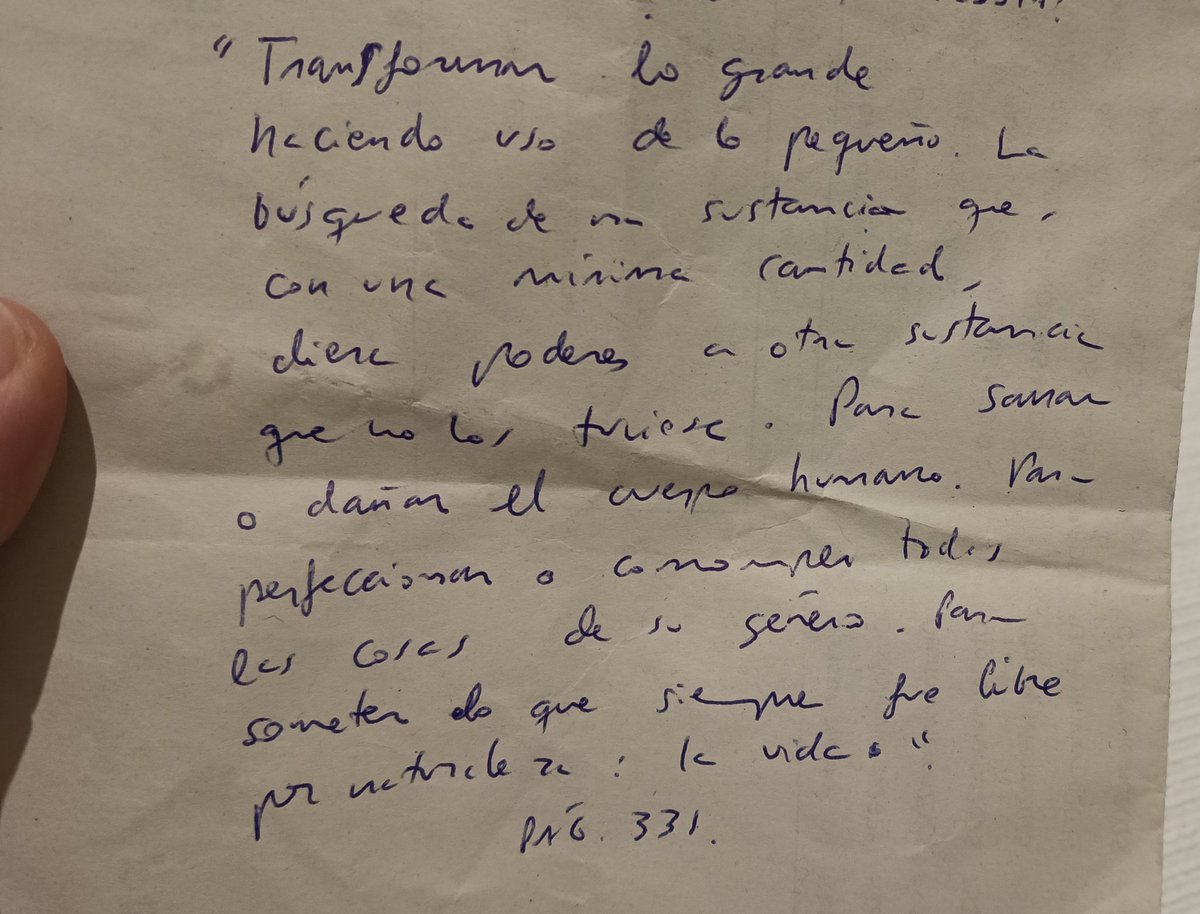 "Transformar lo grande
haciendo uso de lo pequeño. La
búsqueda de una sustancia que,
con una mínima cantidad,
diera poderes a otra sustancia
que no los tuviese. Para sanar
o dañar el cuerpo humano. Para
perfeccionar o corromper todas
las cosas de su género. Para
someter lo que siempre fue libre
por naturaleza: la vida."
PÁG. 331.